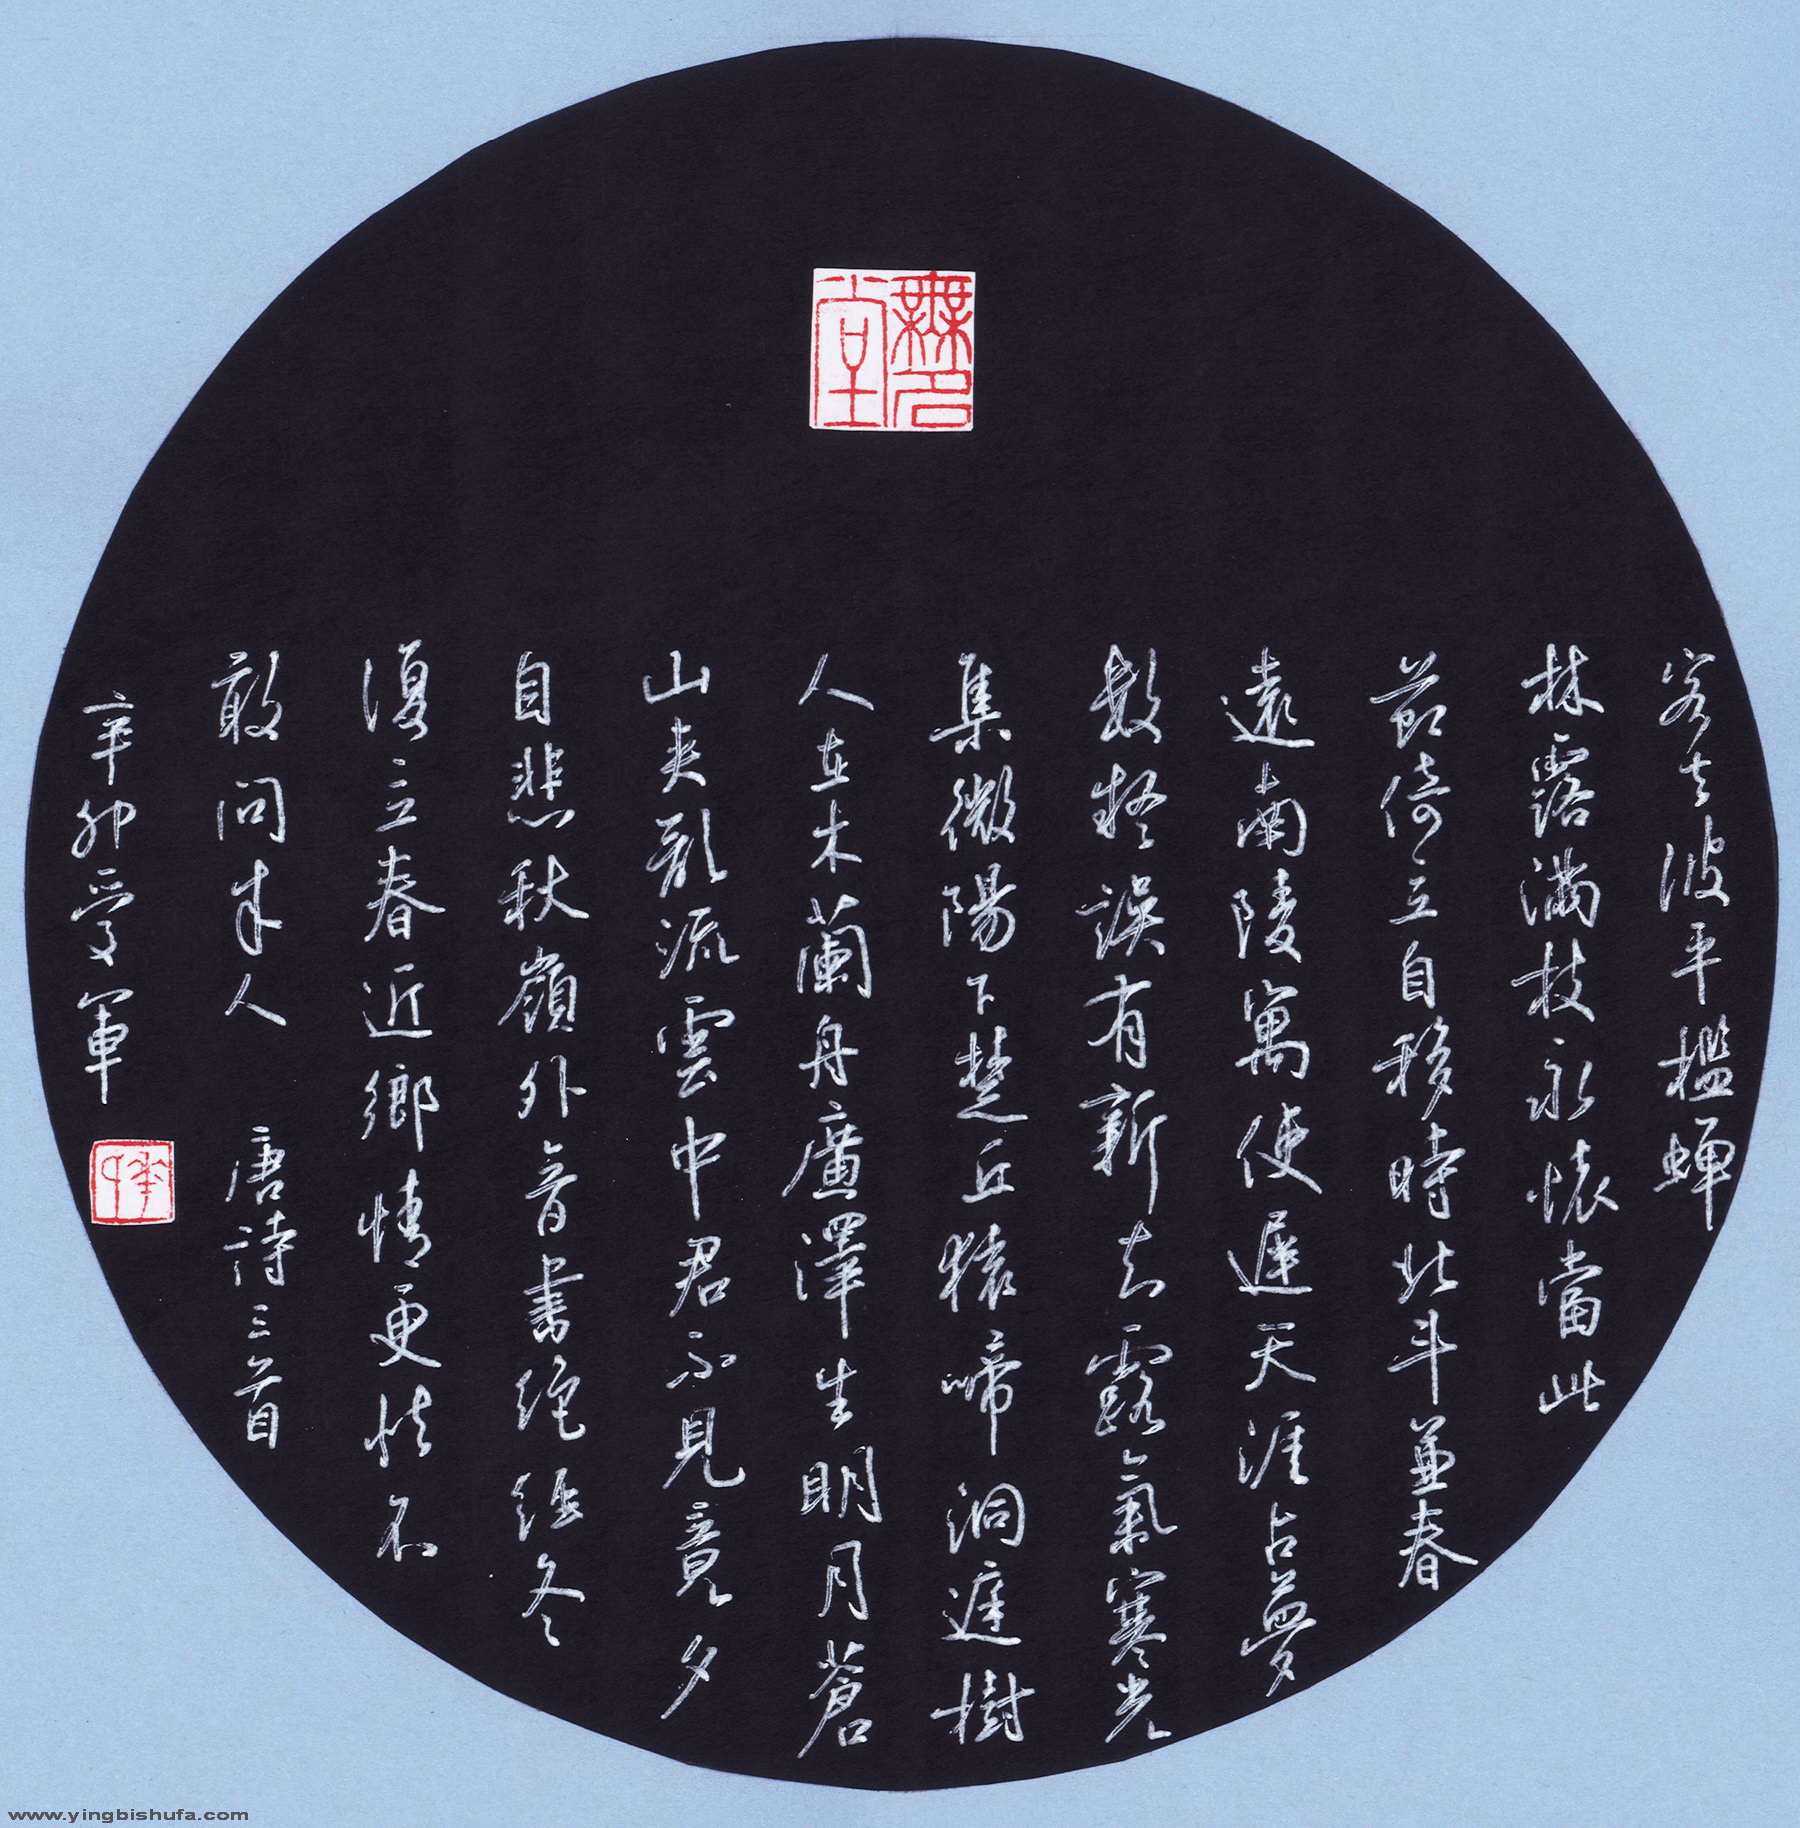 無名堂
客去波平檻蟬
林露滿枝永懷當此
節倚立自移時北斗兼春
遠南陵寓使遲天涯占夢
數疑誤有新知露氣寒光
集微陽下楚丘猿啼洞庭樹
人在木蘭舟廣澤生明月蒼
山夾亂流雲中君不見竟夕
自悲秋嶺外音書絕經冬
復立春近鄉情更怯不
敢問來人 唐詩三首
辛卯軍
www.yingbishufa.com